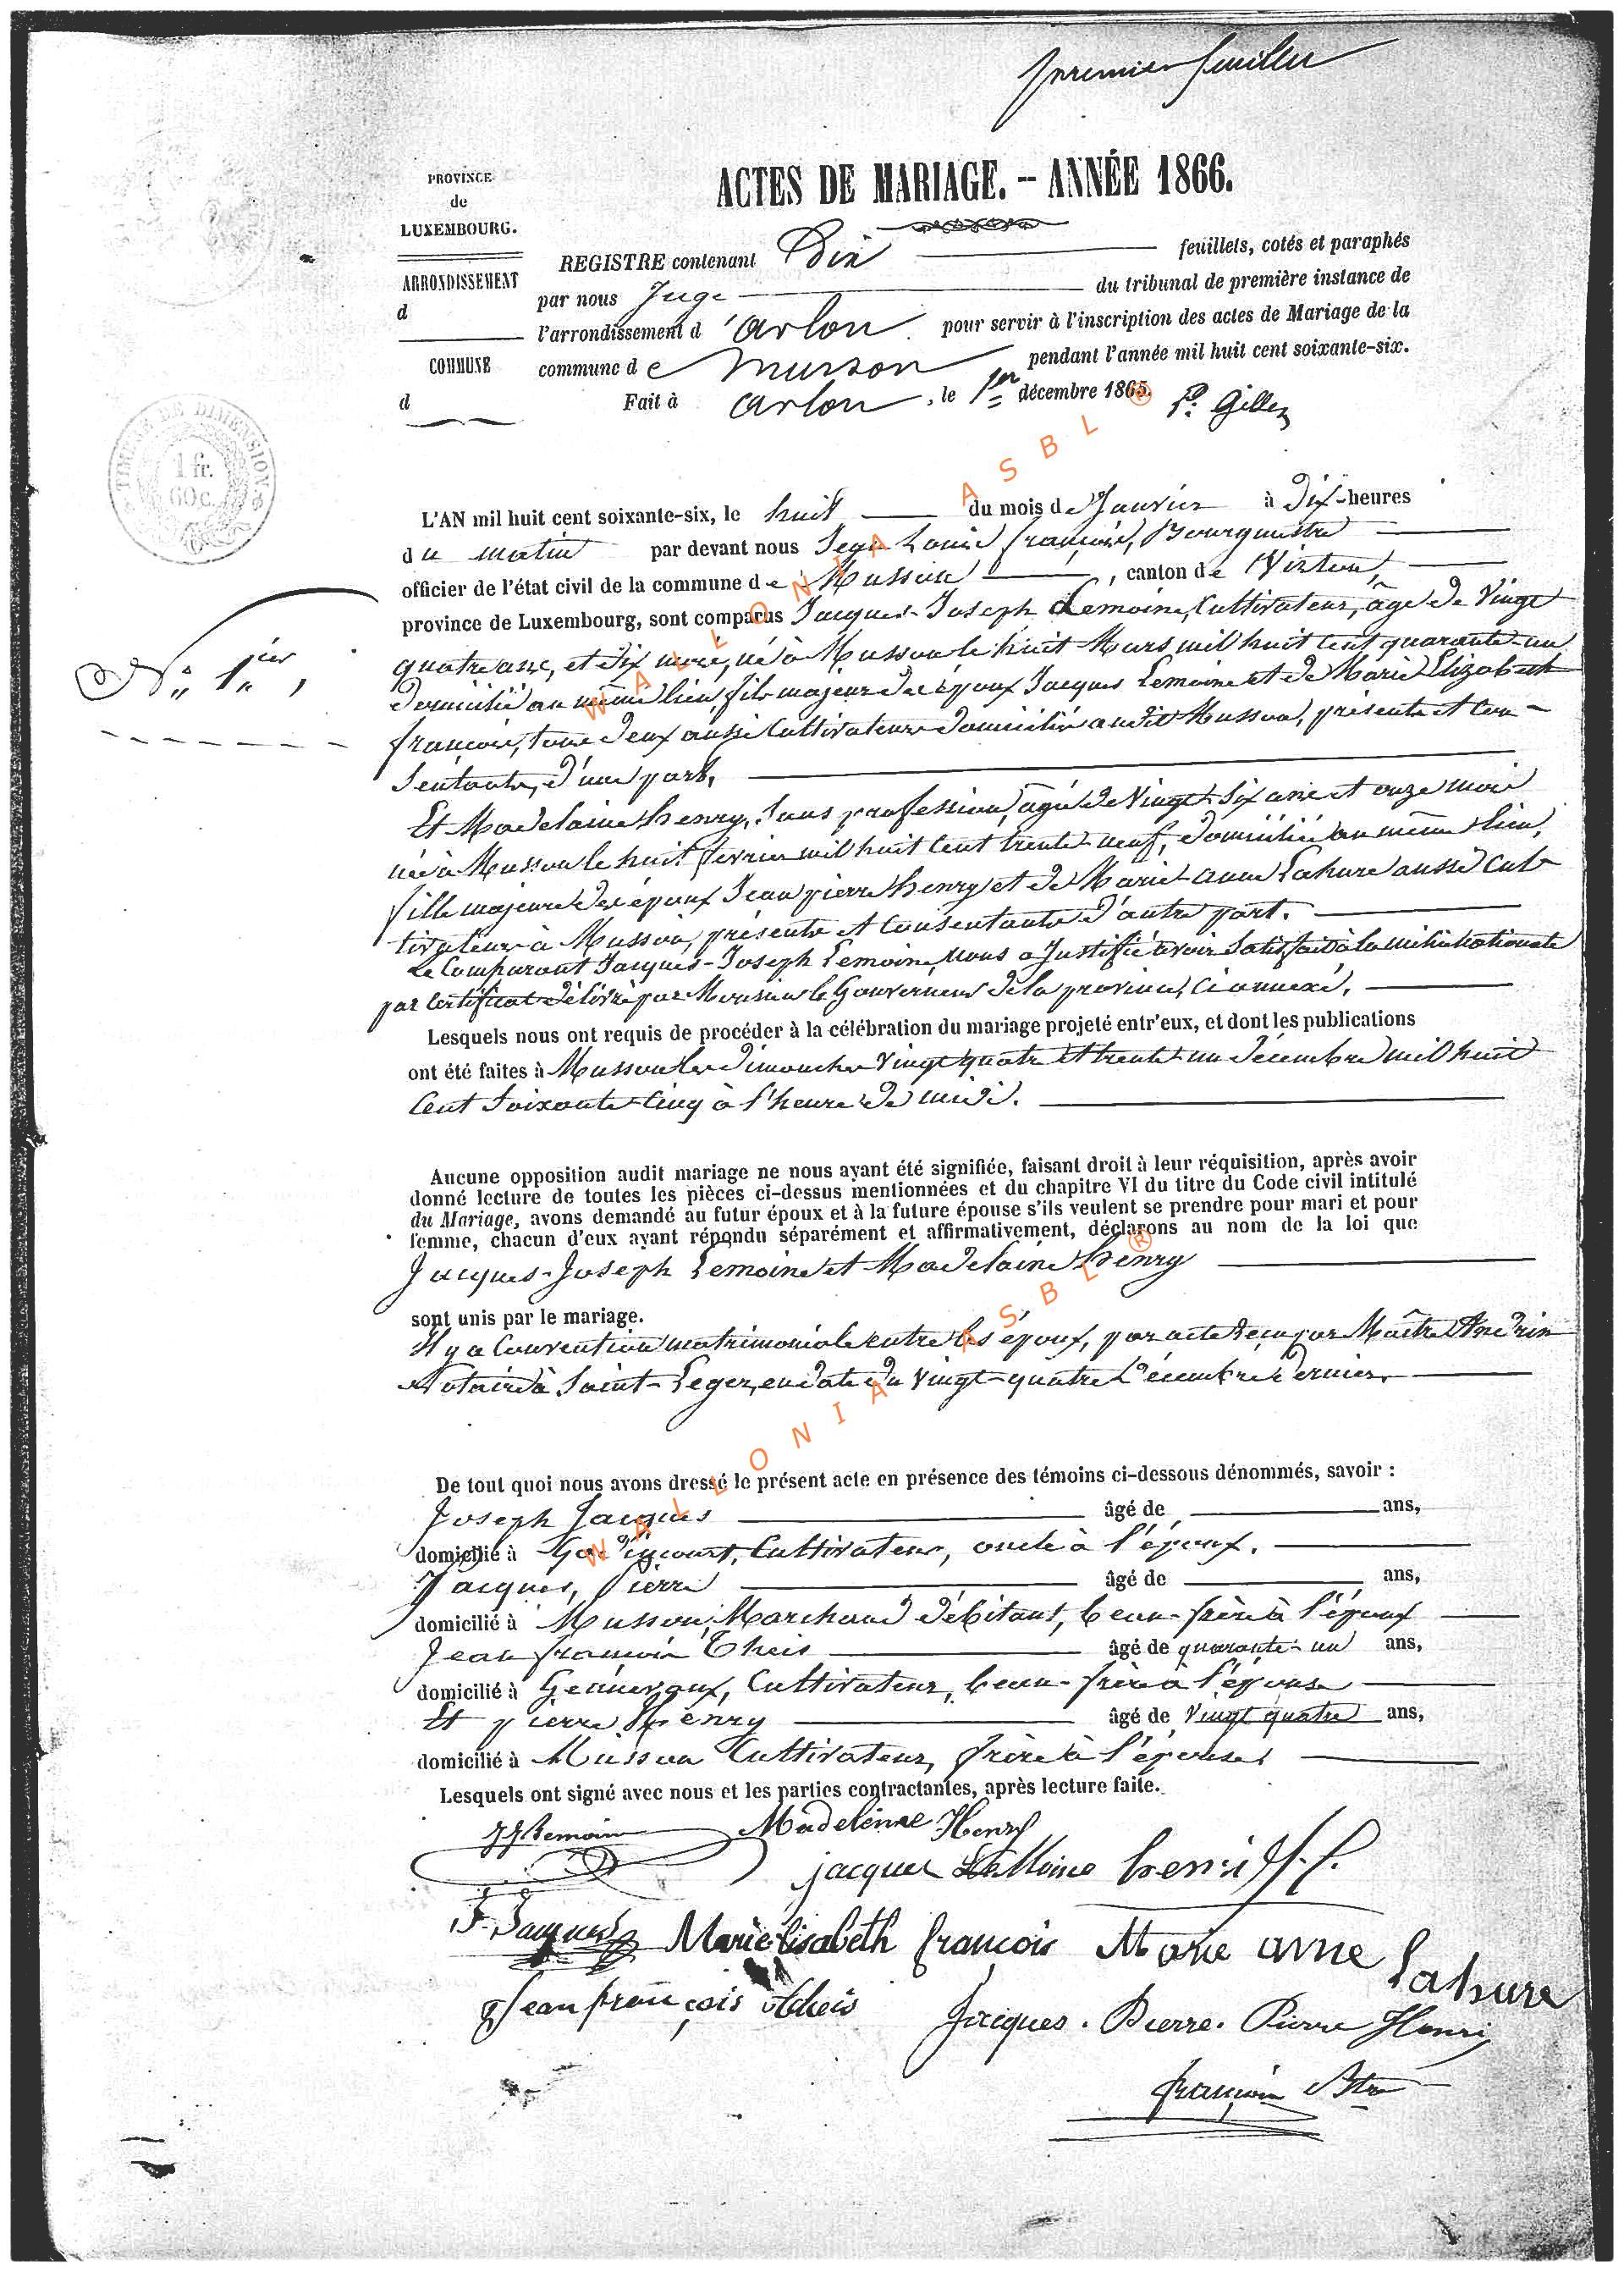 premier feuillet
PROVINCE
de
LUXEMBOURG.
ARRONDISSEMENT
d
COMMUNE
d
ACTES DE MARIAGE. – ANNÉE 1866.
REGISTRE contenant Dix feuillets, cotés et paraphés
par nous Juge du tribunal de première instance de
l'arrondissement d'Arlon pour servir à l'inscription des actes de Mariage de la
commune de Musson pendant l'année mil huit cent soixante-six.
Fait à Arlon, le 1er décembre 1865.
TIMBRE DE DIMENSION
1 fr.
60 c.
L'AN mil huit cent soixante-six, le huit du mois de Janvier à Dix heures
du matin par devant nous Jean Louis françois, Bourgmestre
officier de l'état civil de la commune de Musson, canton de Virton,
province de Luxembourg, sont comparus Jacques-Joseph Lemoine, Cultivateur, âgé de Vingt
N° 1er,
quatre ans, et dix mois, né à Musson le huit Mars mil huit cent quarante-un
domicilié au même lieu, fils majeur des époux Jacques Lemoine et de Marie Elizabeth
françois, tous deux aussi Cultivateurs domiciliés audit Musson, présents et con-
sentants, d'une part,
Et Madelaine henry, sans profession, âgée de Vingt-Six ans et onze mois
née à Musson le huit fevrier mil huit cent trente-neuf, domiciliée au même lieu,
fille majeure des époux Jean pierre henry et de Marie-anne Lahure aussi cul-
tivateurs à Musson, présents et consentants d'autre part.
Le Comparant Jacques-Joseph Lemoine, nous a Justifié avoir Satisfait à la milice nationale
par Certificat délivré par Monsieur le Gouverneur de la province, ci annexé.
Lesquels nous ont requis de procéder à la célébration du mariage projeté entr'eux, et dont les publications
ont été faites à Musson les dimanches vingt quatre et trente-un décembre mil huit
cent Soixante-Cinq à l'heure de midi.
Aucune opposition audit mariage ne nous ayant été signifiée, faisant droit à leur réquisition, après avoir
donné lecture de toutes les pièces ci-dessus mentionnées et du chapitre VI du titre du Code civil intitulé
du Mariage, avons demandé au futur époux et à la future épouse s'ils veulent se prendre pour mari et pour
femme, chacun d'eux ayant répondu séparément et affirmativement, déclarons au nom de la loi que
Jacques-Joseph Lemoine et Madelaine henry
sont unis par le mariage.
Il y a Convention matrimoniale entre les époux, par acte reçu par Maître
Notaire à Saint-Leger, en date du Vingt-quatre Décembre dernier.
De tout quoi nous avons dressé le présent acte en présence des témoins ci-dessous dénommés, savoir :
Joseph Jacques âgé de ans,
domicilié à Gorcincourt, Cultivateur, oncle à l'époux.
Jacques, Pierre âgé de ans,
domicilié à Musson, Marchand débitant, beau-frère à l'époux
Jean françois Theis âgé de quarante-un ans,
domicilié à Gennevaux, Cultivateur, beau-frère à l'épouse
Et pierre Henry âgé de Vingt quatre ans,
domicilié à Musson Cultivateur, frère à l'épouse,
Lesquels ont signé avec nous et les parties contractantes, après lecture faite.
JJ Lemoine Madeleinne Henry
jacques LeMoine henri J. P.
J. Jacques Marie elisabeth françois Marie anne Lahure
Jean françois theis Jacques. Pierre. Pierre Henri
françois
WALLONIA ASBL ®
WALLONIA ASBL ®